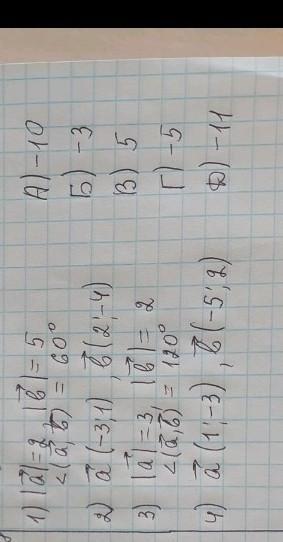 1) |a⃗|=2 |b⃗|=5
<(a⃗,b⃗) = 60°
2) a⃗ (-3;1), b⃗ (2;-4)
3) |a⃗|=3 |b⃗|= 2
<(a⃗,b⃗) = 120°
4) a⃗ (1;-3), b⃗ (-5;2)
А) -10
Б) -3
В) 5
Г) -5
Д) -11